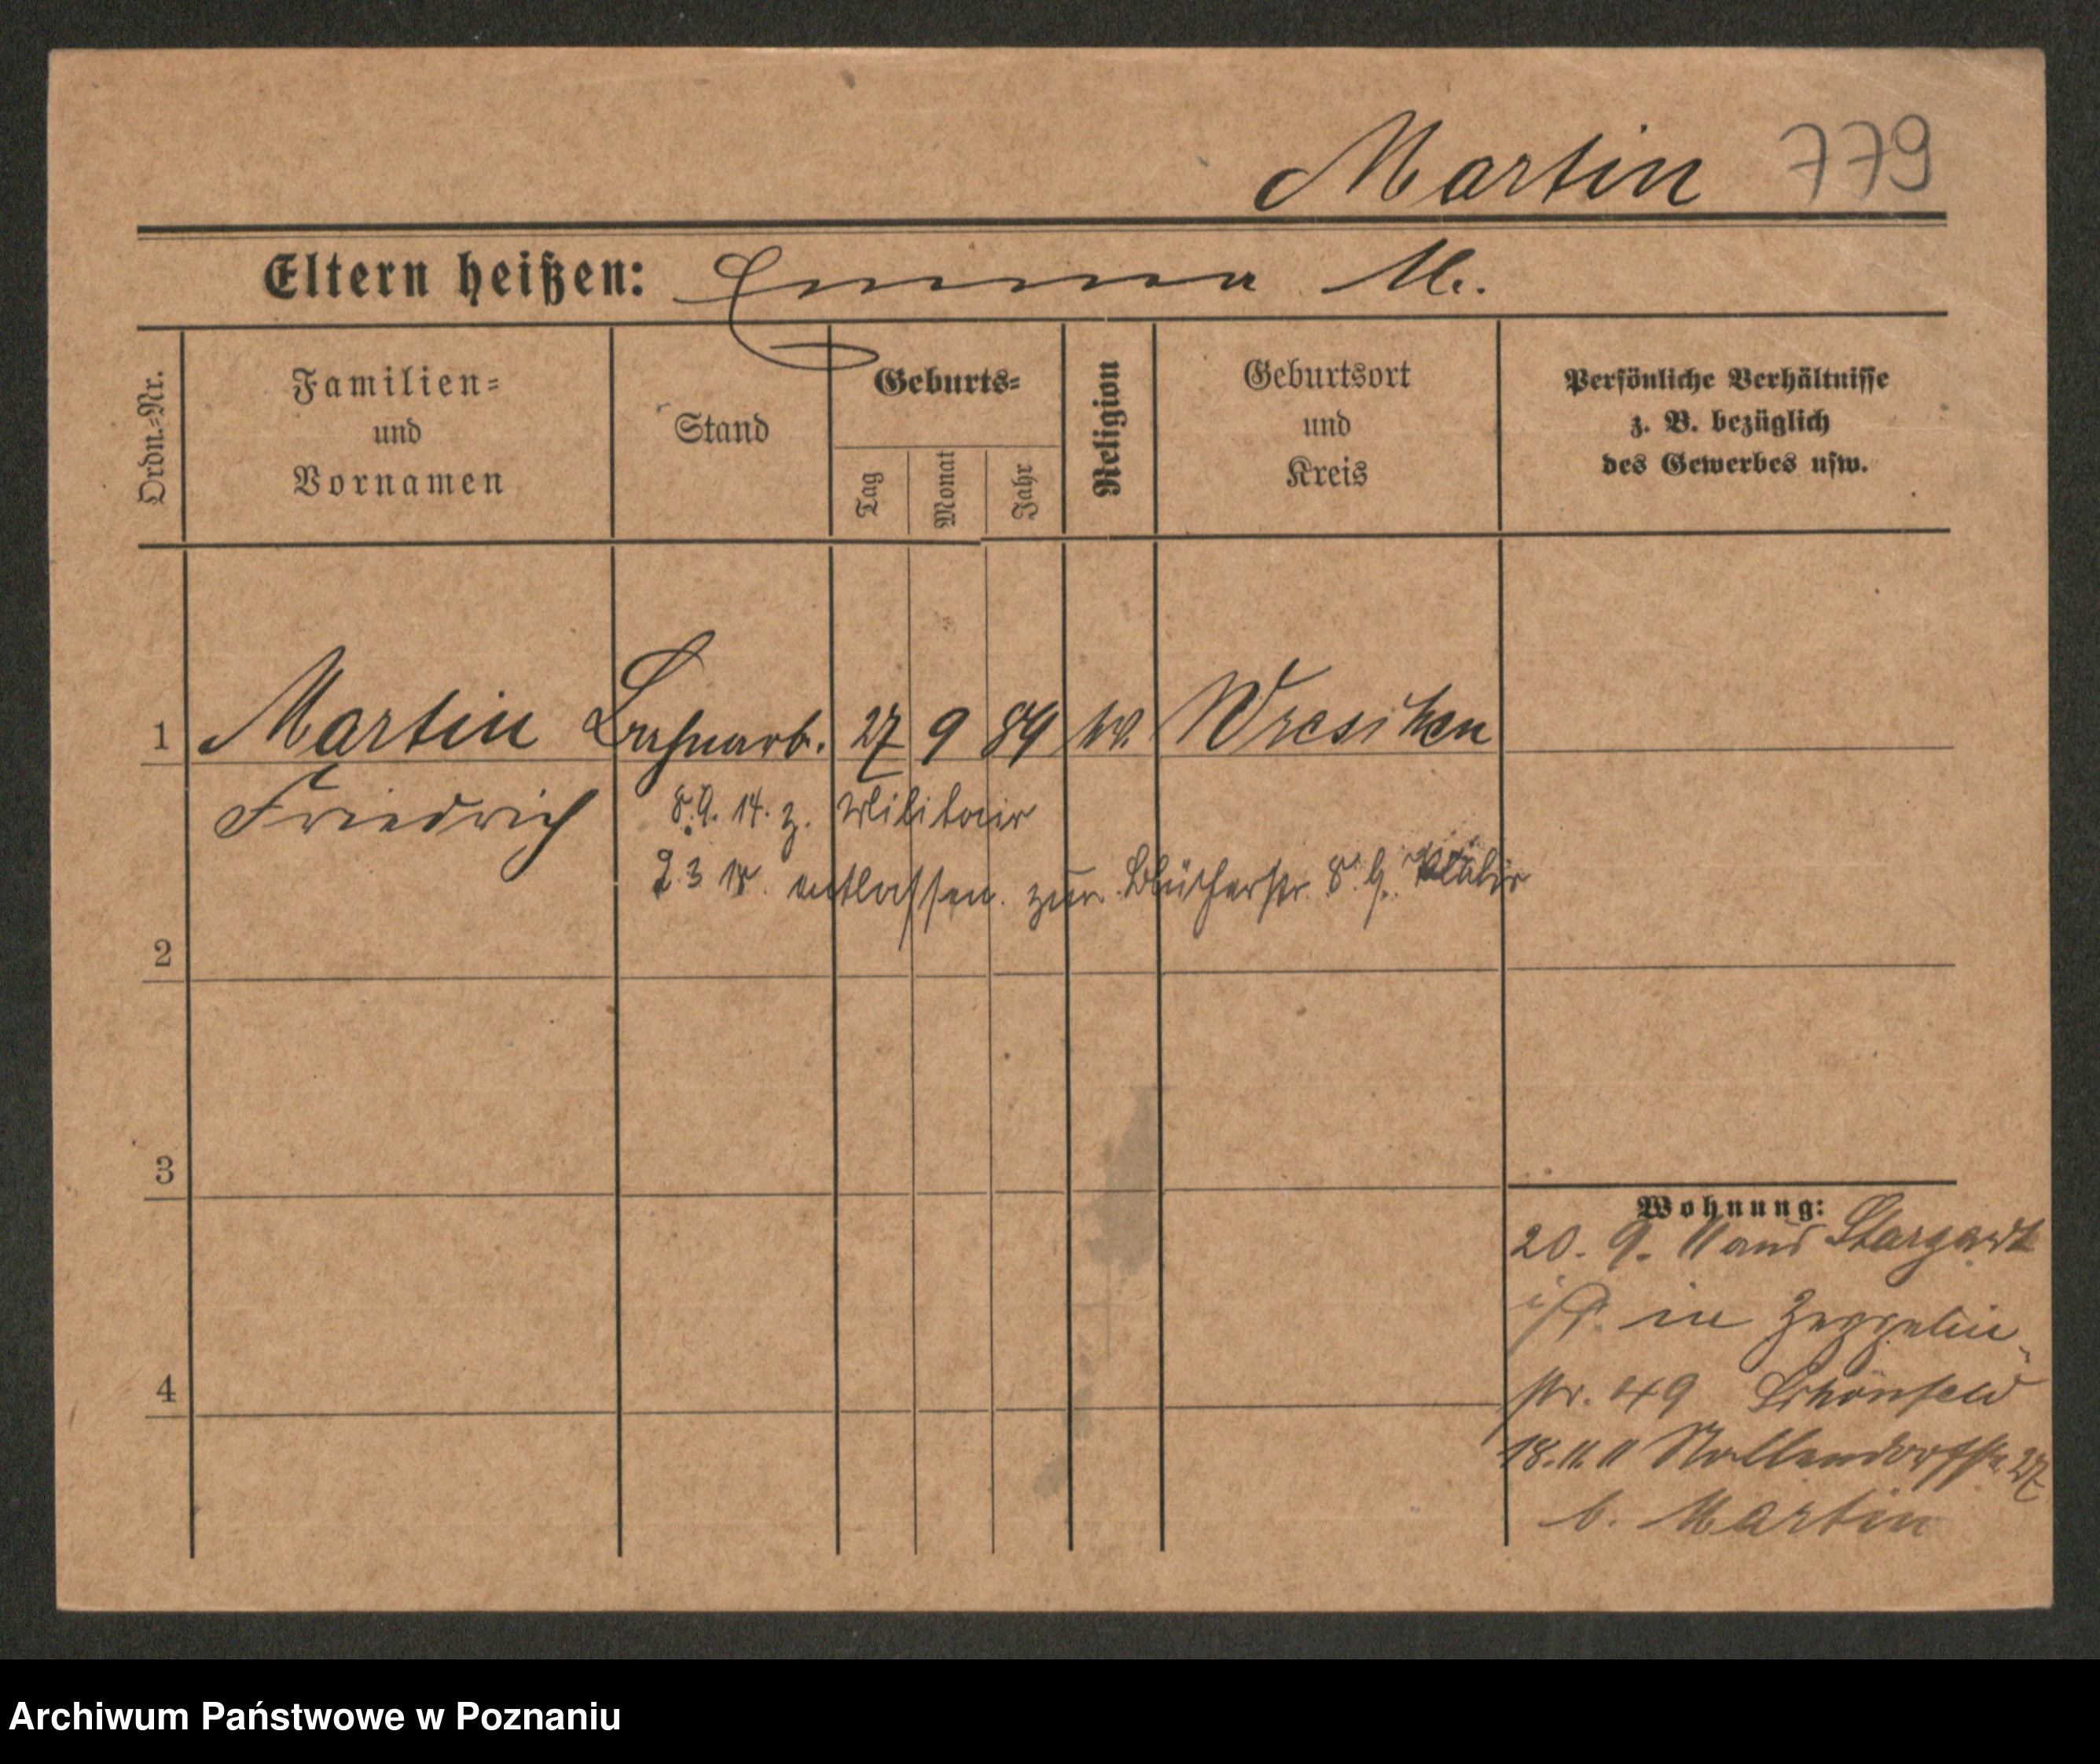 Martin 779
Eltern heißen: Emma M.
Ordn.-Nr.
Familien-
und
Vornamen
Stand
Geburts-
Tag
Monat
Jahr
Religion
Geburtsort
und
Kreis
Persönliche Verhältnisse
z. B. bezüglich
des Gewerbes usw.
1 Martin Bahnarb. 27 9 89 Wresihen
Friedrich 8.9.14. z. Militair
2.3 18. entlassen. zur Blücherstr. 8.
2
3
4
Wohnung:
20. 9. 11 aus Stargardt
i/P. in Zeppelin-
str. 49 Schönfeld
18.11.11 Nollendorfstr 27
b. Martin
Archiwum Państwowe w Poznaniu